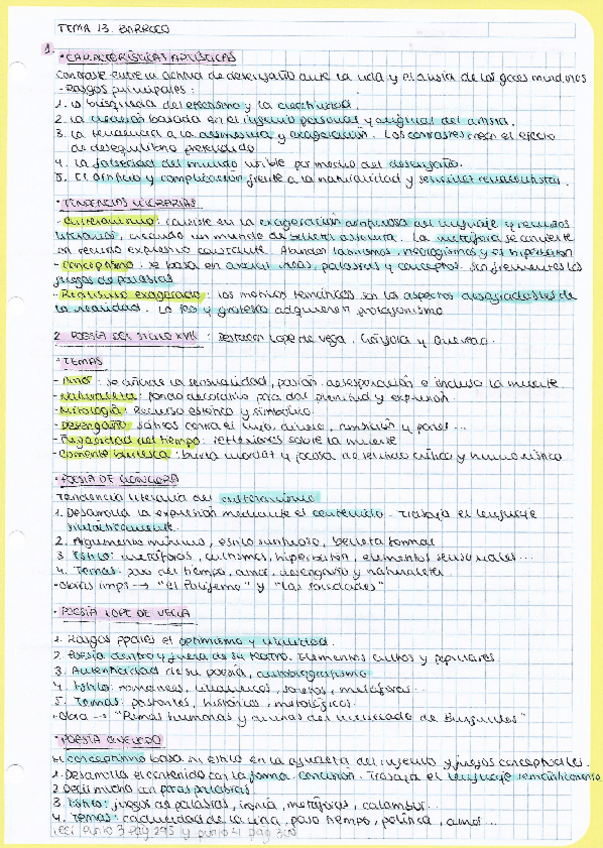 TEMA 13. BARROCO
1.
· CARACTERÍSTICAS ARTÍSTICAS
Contraste entre la actitud de desengaño ante la vida y el ansia de los goces mundanos
- Rasgos principales:
1. La búsqueda del efectismo y la
2. La creación basada en el ingenio personal y original del artista.
3. La tendencia a la asimetría y exageración. Los contrastes crean el efecto
de desequilibrio pretendido
4. La falsedad del mundo visible por medio del desengaño.
5. El artificio y complicación frente a la naturalidad y sencillez renacentista.
· TENDENCIAS LITERARIAS
- Culteranismo: consiste en la exageración del lenguaje y recursos
literarios, creando un mundo de belleza absoluta. La metáfora se convierte
en recurso expresivo constante. Abundan latinismos, neologismos y el hipérbaton
- Conceptismo: se basa en asociar ideas, palabras y conceptos. Son frecuentes los
juegos de palabras
- Realismo exagerado: los motivos temáticos son los aspectos desagradables de
la realidad. Lo feo y grotesco adquieren protagonismo.
2. POESÍA DEL SIGLO XVII: Destacan Lope de Vega, Góngora y Quevedo.
· TEMAS
- Amor: se añade la sensualidad, pasión, desesperación e incluso la muerte.
- Naturaleza: fondo decorativo para dar plenitud y expresión.
- Mitología: Recurso estético y simbólico
- Desengaño: sátiras contra el lujo, dinero, ambición y poder...
- Fugacidad del tiempo: reflexiones sobre la muerte
- Corriente burlesca: burla mordaz y jocosa de sentido crítico y humorístico
· POESÍA DE GÓNGORA
Tendencia literaria del culteranismo
1. Desarrolla la expresión mediante el contenido. Trabaja el lenguaje
sintácticamente.
2. Argumento mínimo, estilo suntuoso, belleza formal
3. Estilo: metáforas, cultismos, hipérbaton, elementos sensoriales...
4. Temas: paso del tiempo, amor, desengaño y naturaleza
- Obras imps → "El Polifemo" y "Las soledades"
· POESÍA LOPE DE VEGA
1. Rasgos ppales el optimismo y vitalidad.
2. Poesía dentro y fuera de su teatro. Elementos cultos y populares
3. Autenticidad de su poesía, autobiografismo
4. Estilo: romances, villancicos, sonetos, metáforas...
5. Temas: pastoriles, históricos, mitológicos.
- Obra → "Rimas humanas y divinas del licenciado de Burguillos"
· POESÍA QUEVEDO
El conceptismo basa su estilo en la agudeza del ingenio y juegos conceptuales.
1. Desarrolla el contenido con la forma. Concisión. Trabaja el lenguaje semánticamente
2. Decir mucho con pocas palabras
3. Estilo: juegos de palabras, ironía, metáforas, calambur...
4. Temas: caducidad de la vida, paso tiempo, política, amor...
punto 3 pág 295 y punto 4 pág 300